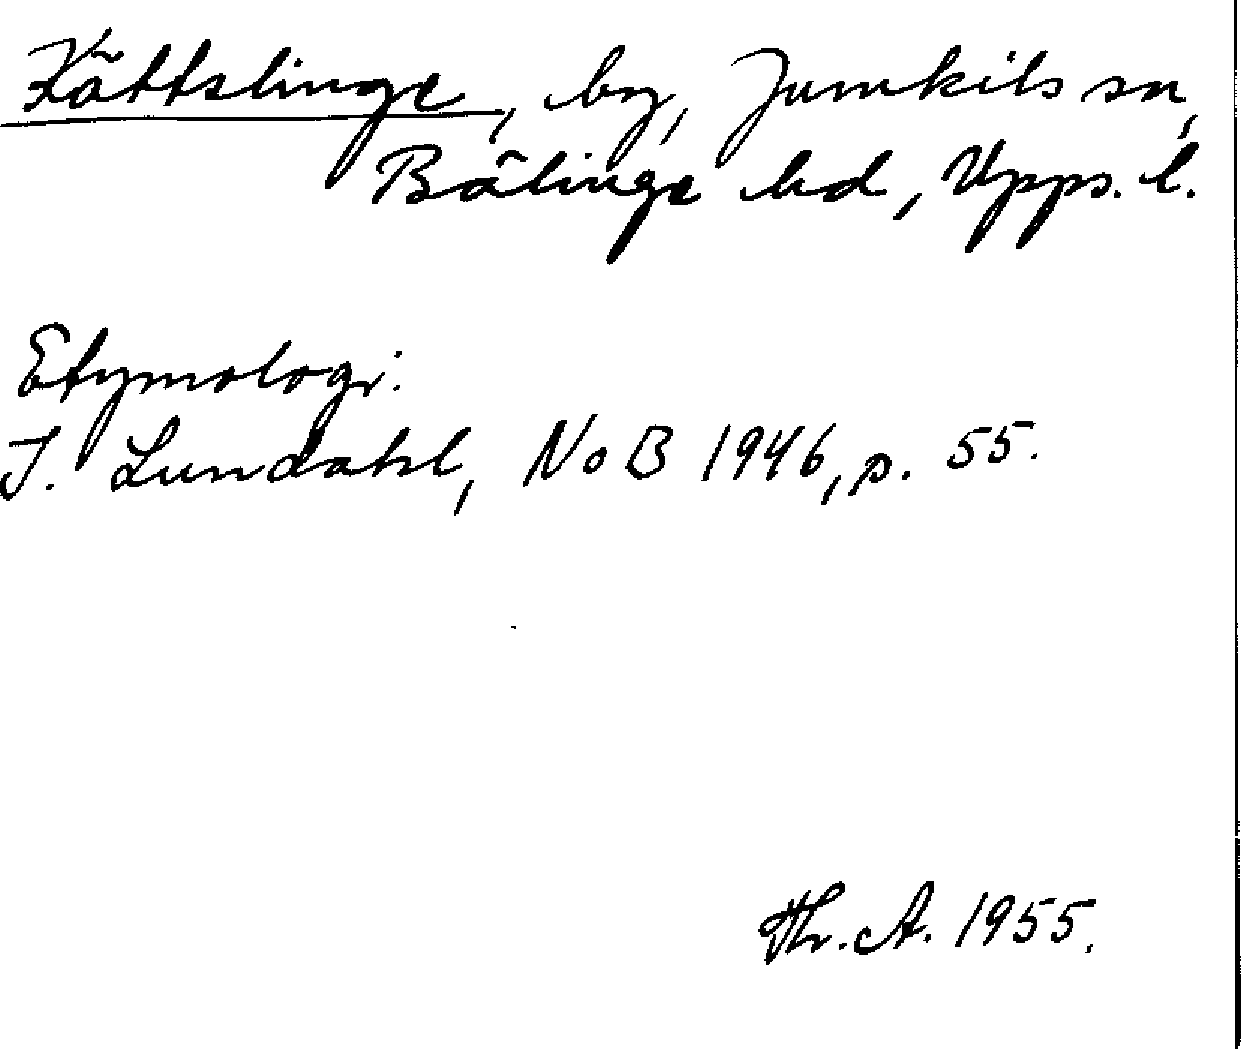 Kättslinge, by, Jumkils sn,
Bälinge hd, Upps. l.
Etymologi.
I. Lundahl, NoB 1946, p. 55.
Hr. A. 1955.